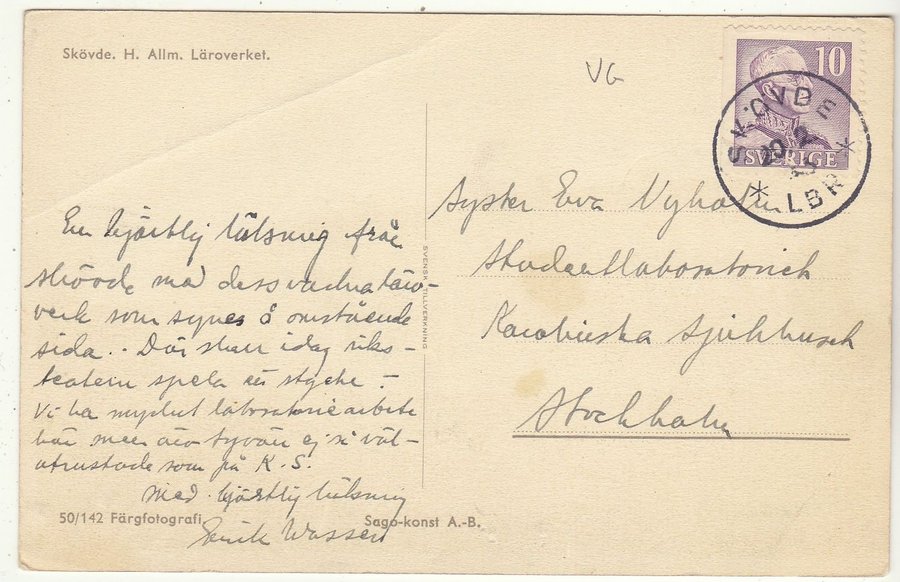 Skövde. H. Allm. Läroverket.
VG
10
SVERIGE
SKÖVDE
20. 2
LBR
En hjärtlig hälsning från
Skövde med dess vackra läro-
verk som synes å omstående
sida.. Där skall idag riks-
teatern spela ett stycke. -
Vi ha mycket laboratoriearbete
här men äro tyvärr ej så väl-
utrustade som på K.S.
Med hjärtlig hälsning
Wassén
Syster Eva Nyholm
Studentlaboratoriet
Karolinska Sjukhuset
Stockholm
SVENSK TILLVERKNING
50/142 Färgfotografi
Sago-konst A.-B.